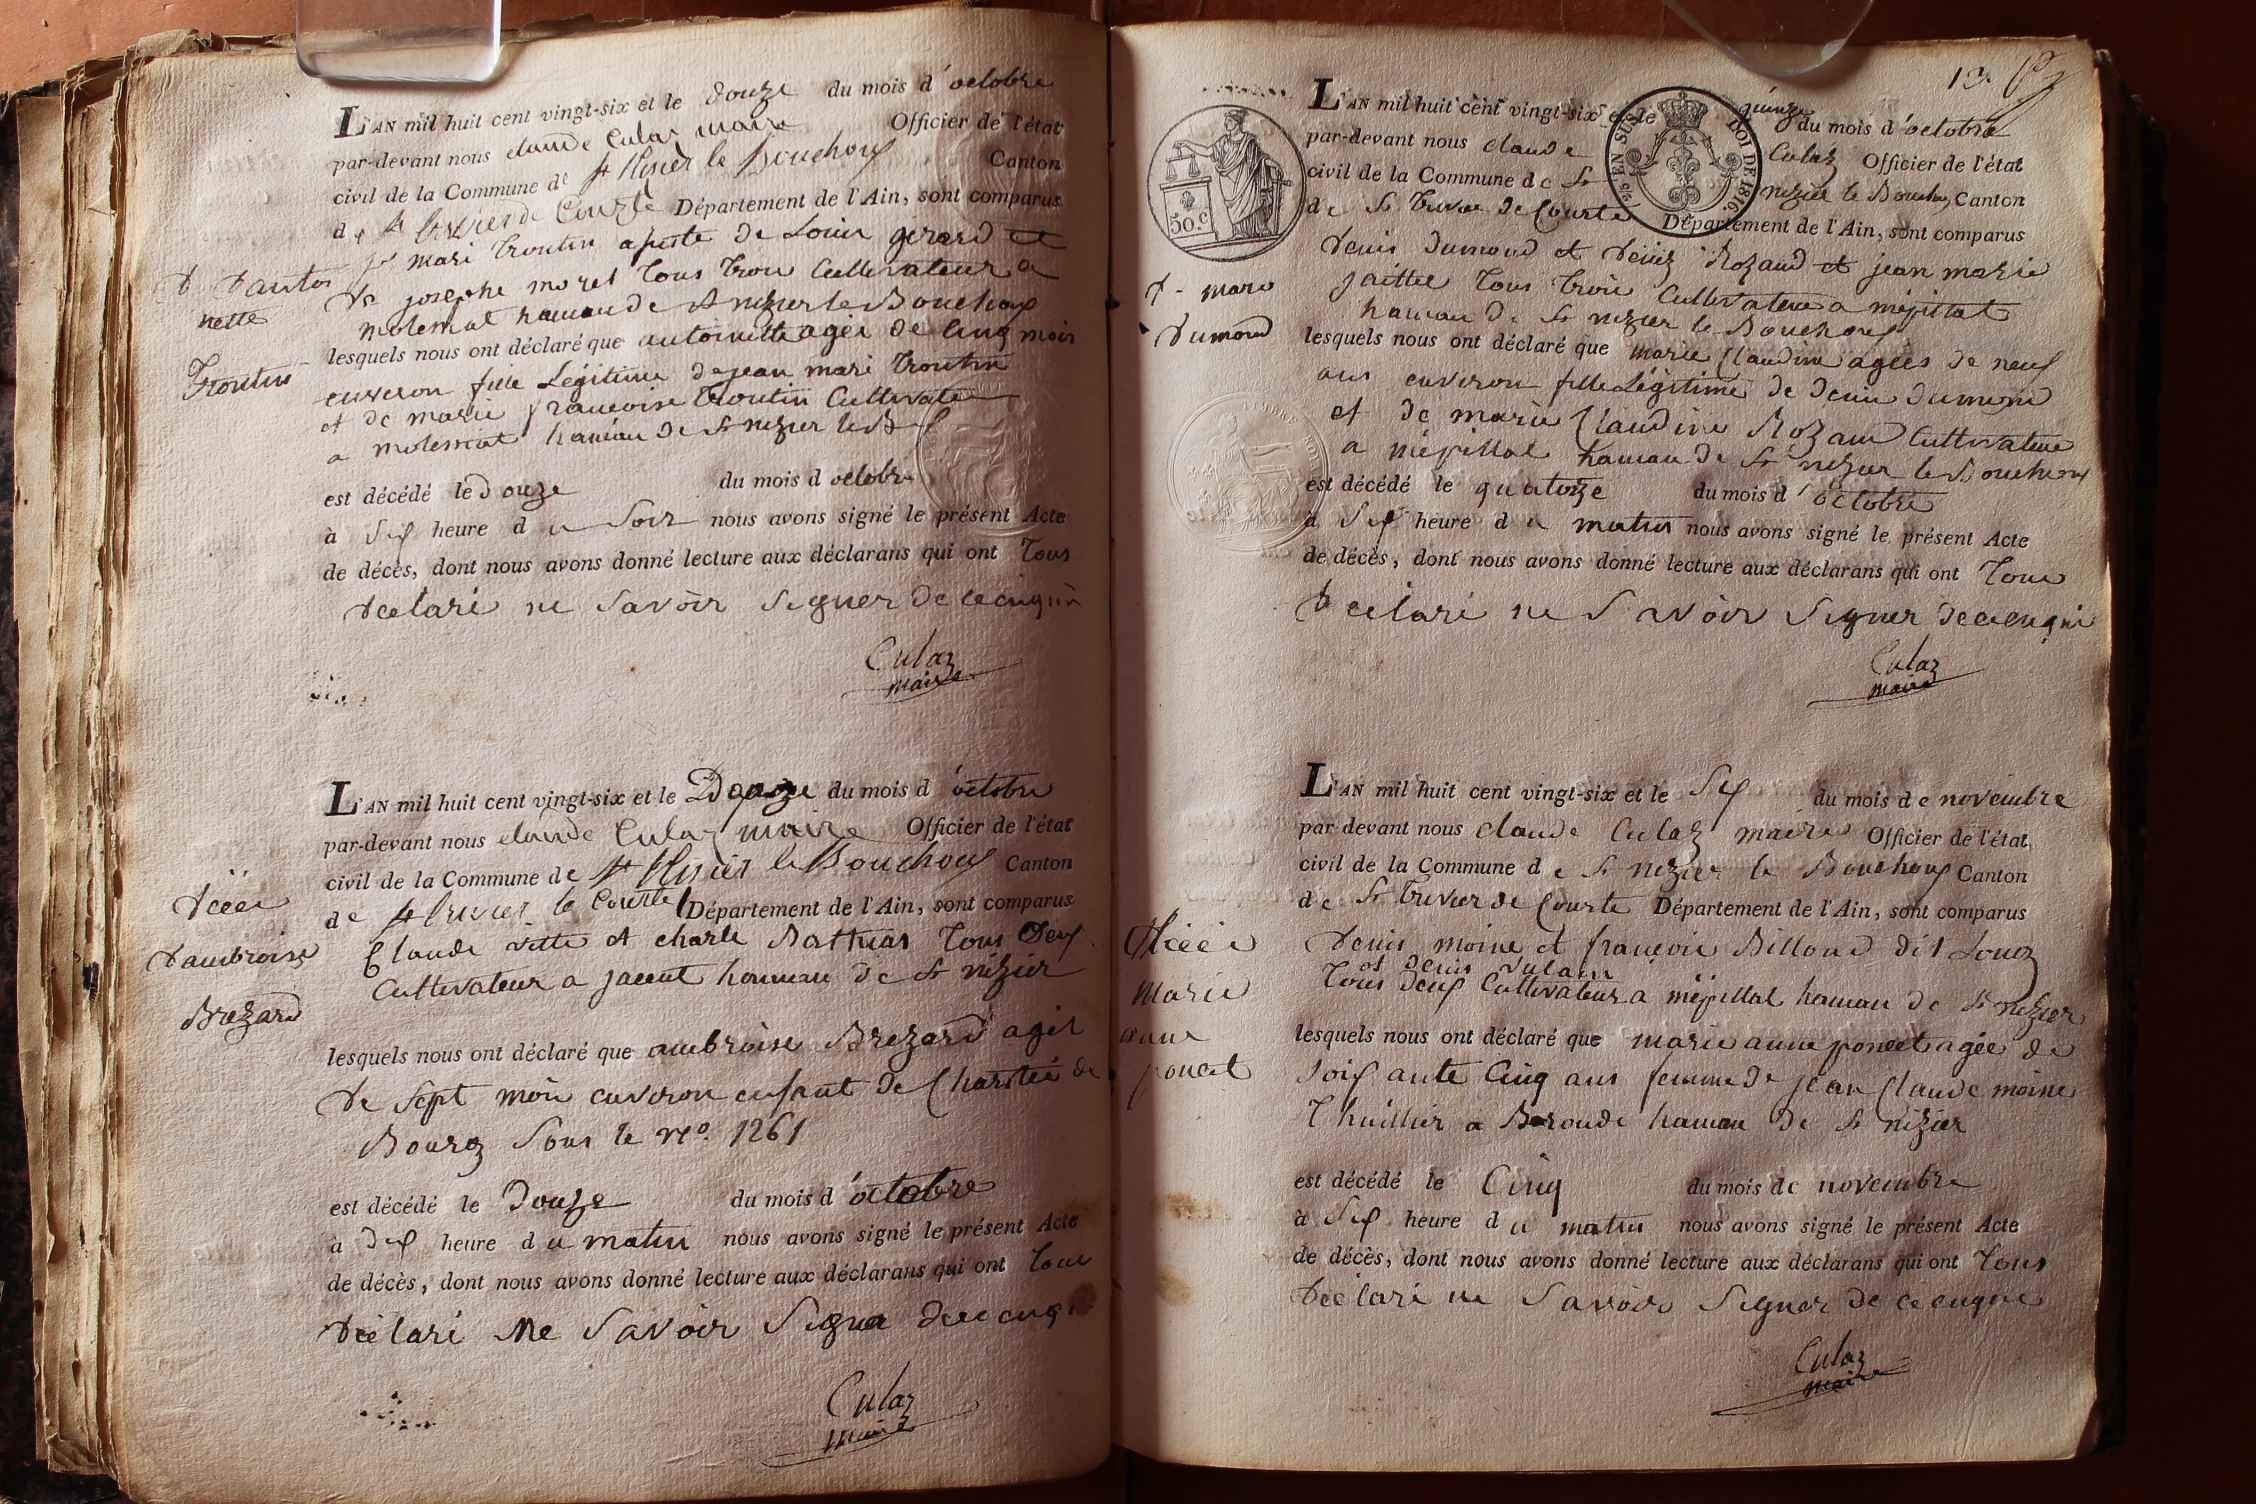 L'AN mil huit cent vingt-six et le douze du mois d'octobre
par-devant nous claude Culaz maire Officier de l'état
civil de la Commune de st Nisier le Bouchoux Canton
de st trivier de Courte Département de l'Ain, sont comparus
jn mari troutin apiste de Louis gerard et
de josephe morel tous trois Cultivateur a
molernat hamau de st nizier le Bouchoux
D d'antoi
nette
Troutin
lesquels nous ont déclaré que antoinette agée de cinq mois
environ fille Légitime de jean mari troutin
et de marie francoise troutin Cultivate
a molernat haméau de st nizier le B
est décédé le douze du mois d octobre
à Six heure du Soir nous avons signé le présent Acte
de décès, dont nous avons donné lecture aux déclarans qui ont tous
declaré ne Savoir Signer de ce enquis
Culaz
maire
L'AN mil huit cent vingt-six et le Douze du mois d'octobre
par-devant nous claude Culaz maire Officier de l'état
civil de la Commune de st Nisier le Bouchoux Canton
de st trivier le Courte Département de l'Ain, sont comparus
Claude vitte et charle Bathias tous Deux
Cultivateur a jacent hameau de st nizier
Décé
d'ambroise
Brezard
lesquels nous ont déclaré que ambroise Brezard agét
de sept mois environ enfant de Charitée de
Bourg Sous le No. 1261
est décédé le Douze du mois d'octobre
à dix heure du matin nous avons signé le présent Acte
de décès, dont nous avons donné lecture aux déclarans qui ont tous
déclaré Ne Savoir Signer de ce enqui
Culaz
maire
13
L'AN mil huit cent vingt-six et le quinze du mois d'octobre
par-devant nous claude Culaz Officier de l'état
civil de la Commune de st nizier le Bouchoux Canton
de st trivier de Courte Département de l'Ain, sont comparus
denis dumond et deniz Rozand et jean marie
jaillet tous trois Cultivateur a mépillat
hamau de st nizier le Bouchoux
EN SUS
LOI DE 1816.
50.c
D - marie
Dumond
lesquels nous ont déclaré que marie Claudine agées de neuf
ans environ fille Légitime de denis dumond
et de marie Claudine Rozand Cultivateur
a mépillat hamau de st nizier le Bouchoux
est décédé le quatorze du mois d'octobre
à Six heure du matin nous avons signé le présent Acte
de décès, dont nous avons donné lecture aux déclarans qui ont tous
declaré ne Savoir Signer de ce enquis
Culaz
maire
L'AN mil huit cent vingt-six et le Six du mois de novembre
par-devant nous claude Culaz maire Officier de l'état
civil de la Commune de st nizier le Bouchoux Canton
de st trivier de Courte Département de l'Ain, sont comparus
denis moine et françois Billoud dit Louiz
et denis vulain
tous deux Cultivateur a mépillat hamau de st nizier
Décée
Marie
anne
poncet
lesquels nous ont déclaré que marie anne poncet agée de
Soixante Cinq ans femme de jean Claude moine
thuillier a Beronde hamau de st nizier
est décédé le Cinq du mois de novembre
à Six heure du matin nous avons signé le présent Acte
de décès, dont nous avons donné lecture aux déclarans qui ont tous
déclaré ne Savoir Signer de ce enquis
Culaz
maire